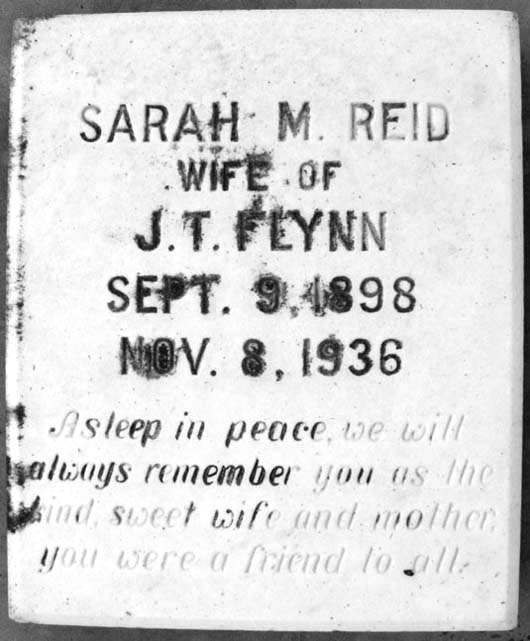 SARAH M. REID
WIFE OF
J.T. FLYNN
SEPT. 9, 1898
NOV. 8, 1936
Asleep in peace, we will
always remember you as the
kind, sweet wife and mother,
you were a friend to all.